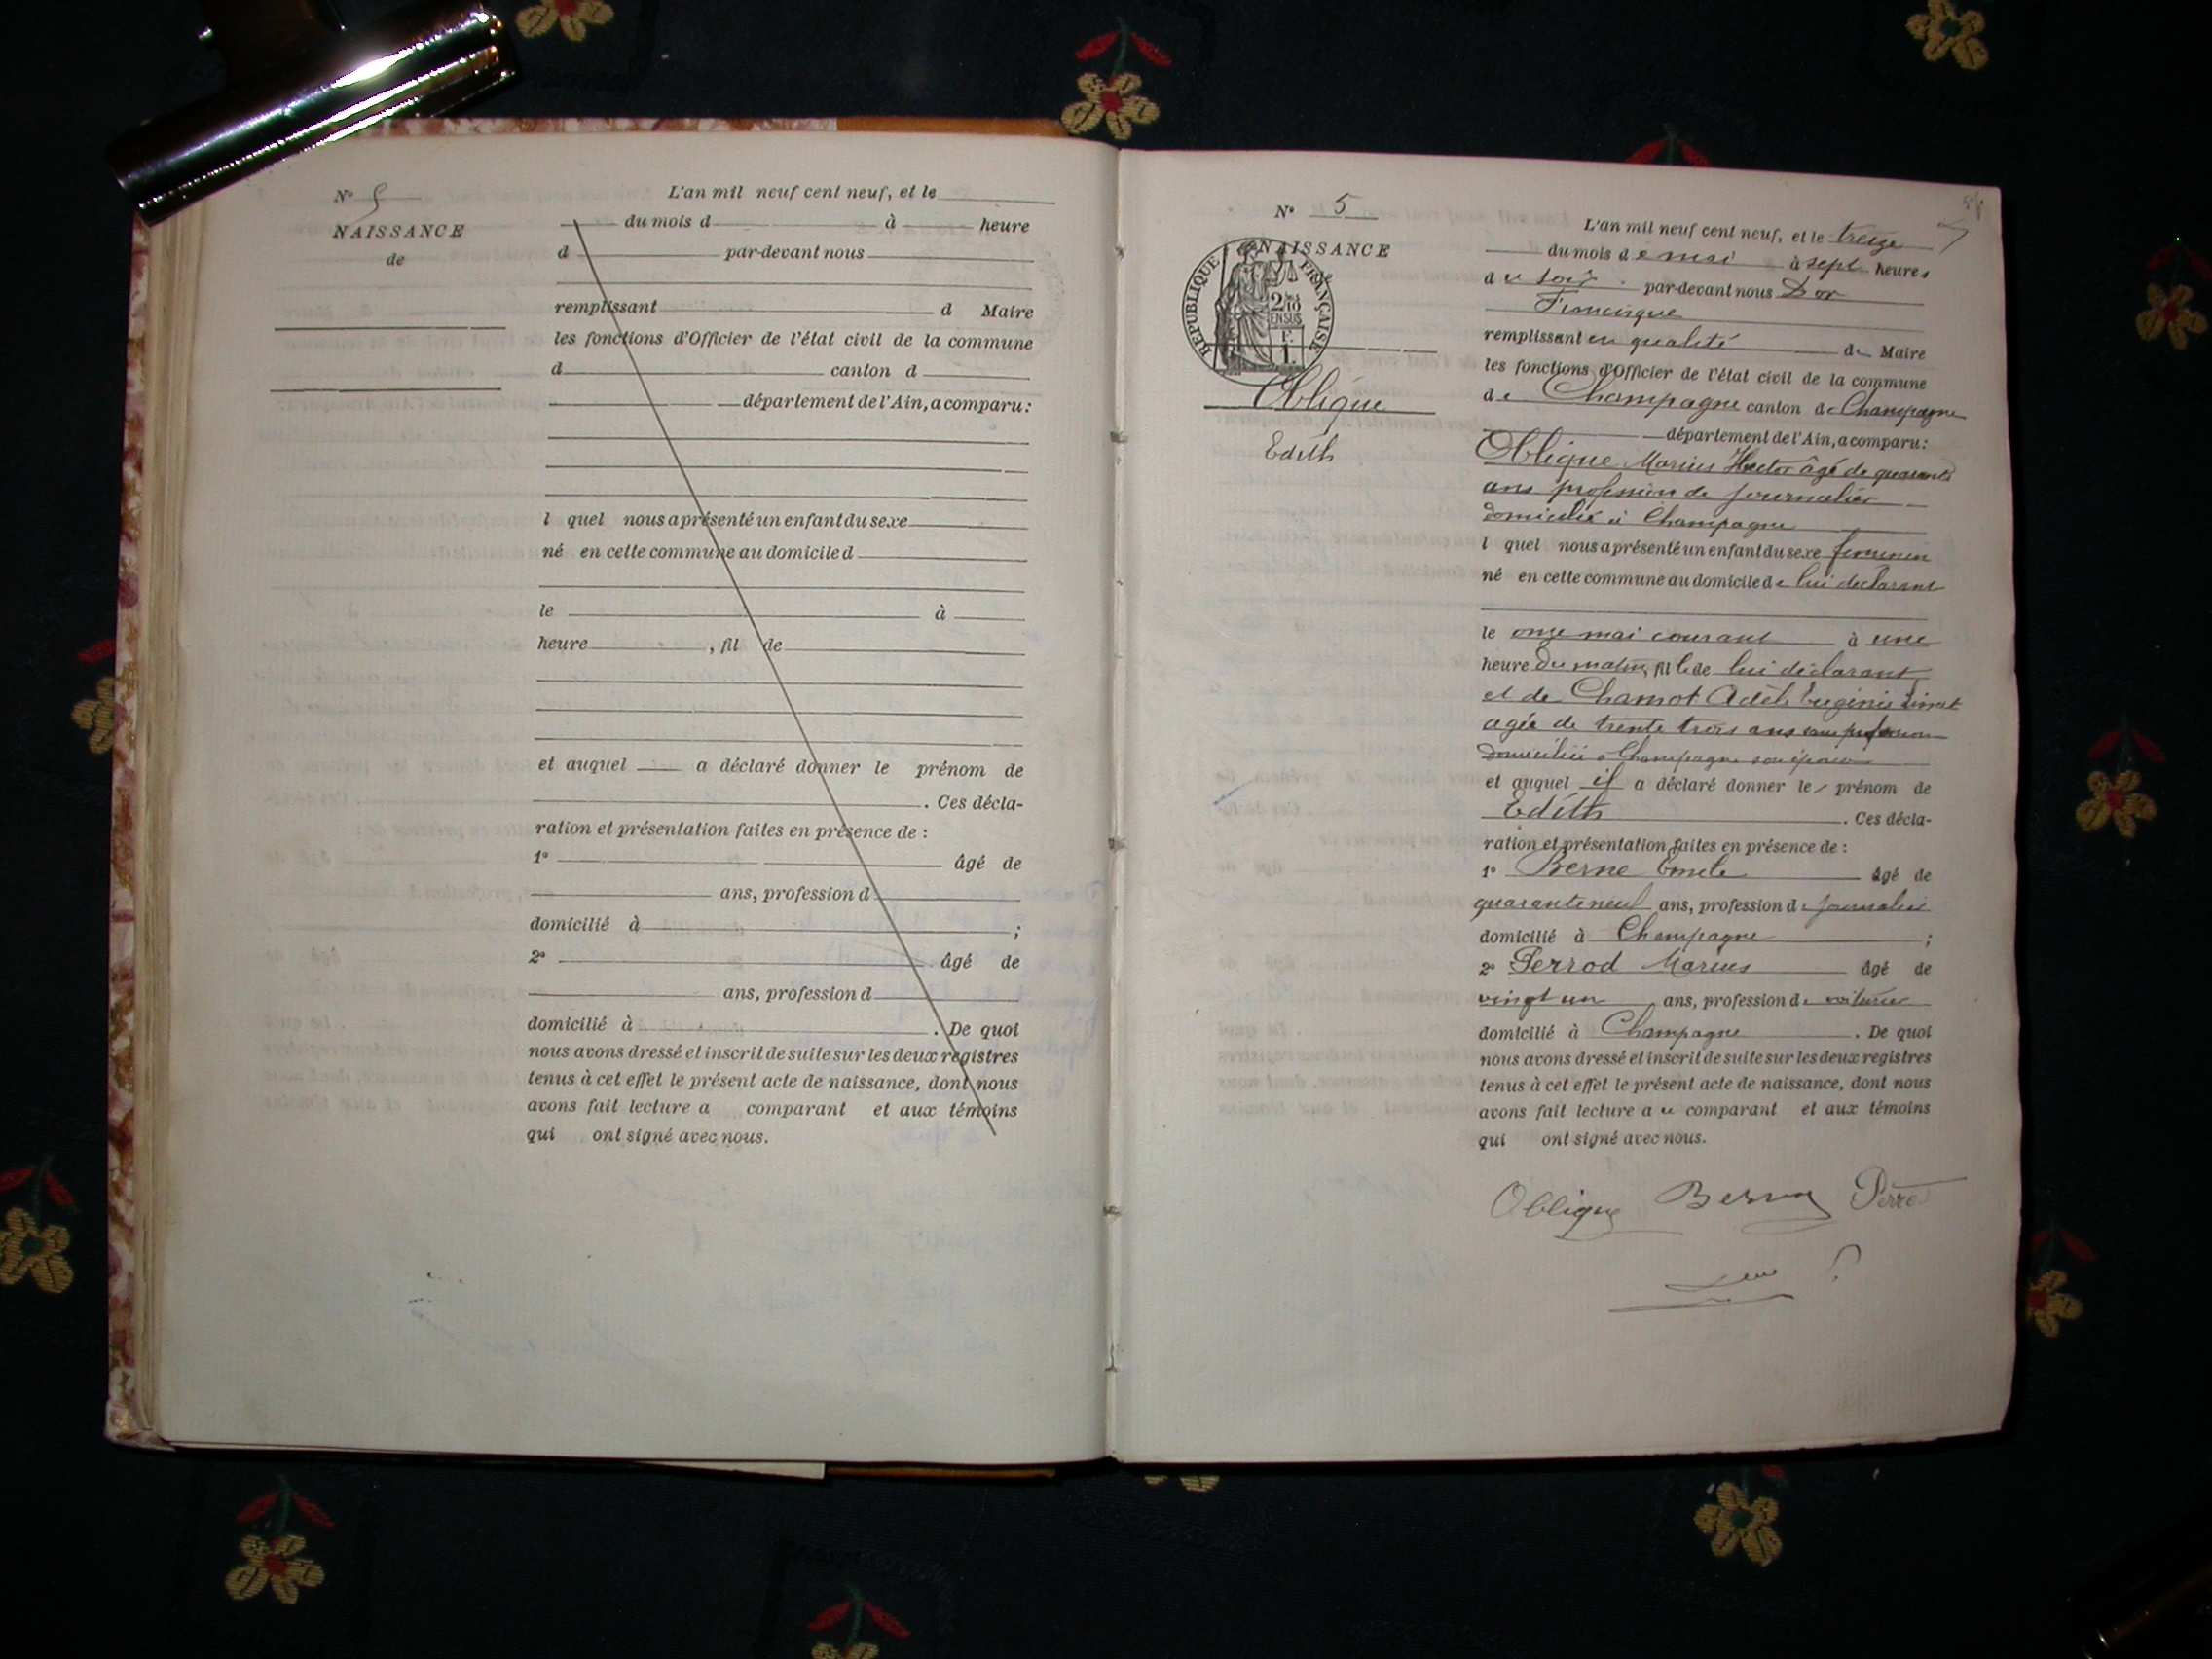 N° 5
NAISSANCE
de
L'an mil neuf cent neuf, et le
du mois d à heure
d par-devant nous
remplissant d Maire
les fonctions d'Officier de l'état civil de la commune
d canton d
département de l'Ain, a comparu:
l quel nous a présenté un enfant du sexe
né en cette commune au domicile d
le à
heure , fil de
et auquel a déclaré donner le prénom de
. Ces décla-
ration et présentation faites en présence de :
1° âgé de
ans, profession d
domicilié à ;
2° âgé de
ans, profession d
domicilié à . De quoi
nous avons dressé et inscrit de suite sur les deux registres
tenus à cet effet le présent acte de naissance, dont nous
avons fait lecture a comparant et aux témoins
qui ont signé avec nous.
N° 5
NAISSANCE
RÉPUBLIQUE FRANÇAISE
2/10
EN SUS
F.
1.
Oblique
Edith
L'an mil neuf cent neuf, et le treize
du mois de mai à sept heures
du soir par-devant nous Dor
Francisque
remplissant en qualité de Maire
les fonctions d'Officier de l'état civil de la commune
de Champagne canton de Champagne
département de l'Ain, a comparu:
Oblique Marius Hector âgé de quarante
ans profession de journalier
domicilié à Champagne
l quel nous a présenté un enfant du sexe feminin
né en cette commune au domicile de lui déclarant
le onze mai courant à une
heure du matin, fille de lui déclarant
et de Chamot Adèle Eugénie
agée de trente trois ans sans profession
domiciliée à Champagne son épouse
et auquel il a déclaré donner le prénom de
Edith . Ces décla-
ration et présentation faites en présence de :
1° Berne Emile âgé de
quarante neuf ans, profession de journalier
domicilié à Champagne ;
2° Perrod Marius âgé de
vingt un ans, profession de voiturier
domicilié à Champagne . De quoi
nous avons dressé et inscrit de suite sur les deux registres
tenus à cet effet le présent acte de naissance, dont nous
avons fait lecture au comparant et aux témoins
qui ont signé avec nous.
Oblique Berne Perrod